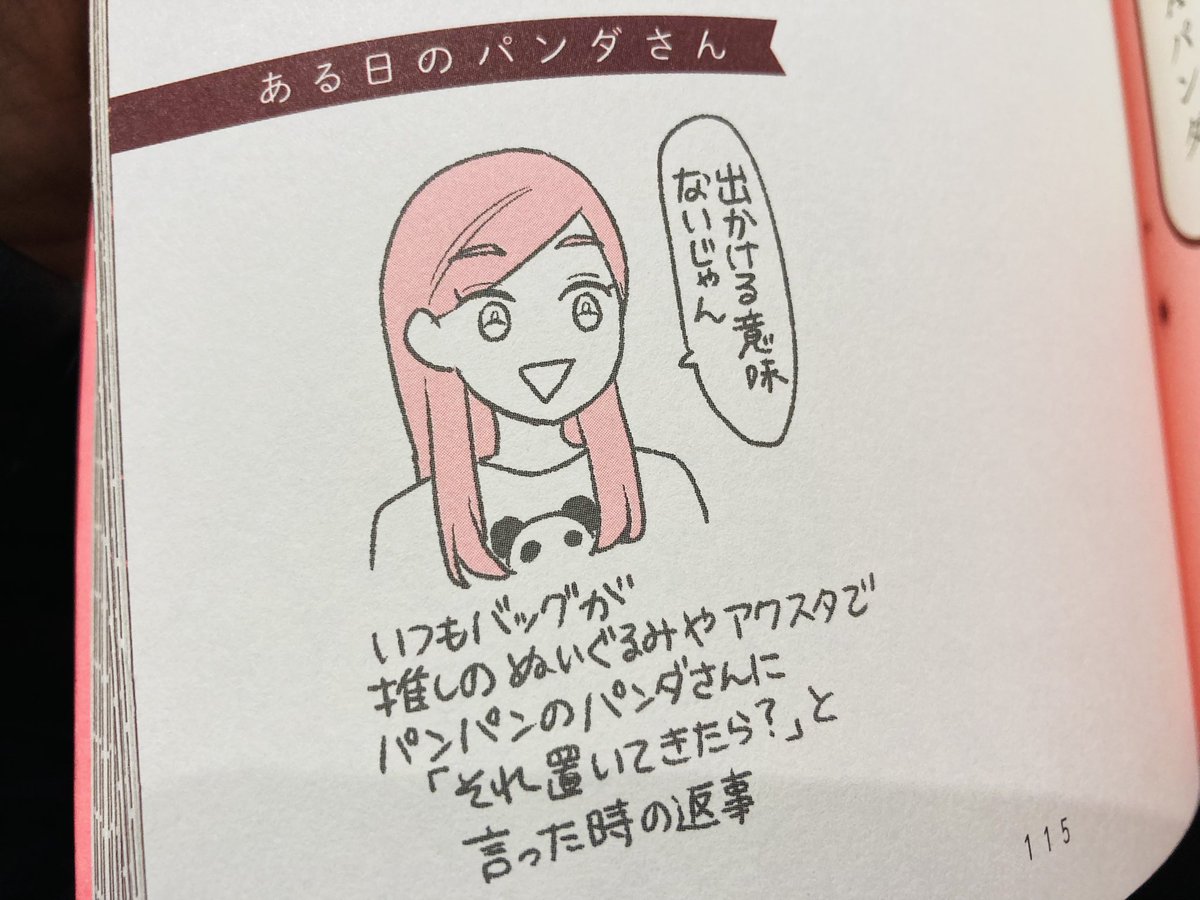 ある日のパンダさん
出かける意味
ないじゃん
いつもバッグが
推しのぬいぐるみやアクスタで
パンパンのパンダさんに
「それ置いてきたら？」と
言った時の返事
115
パンダ